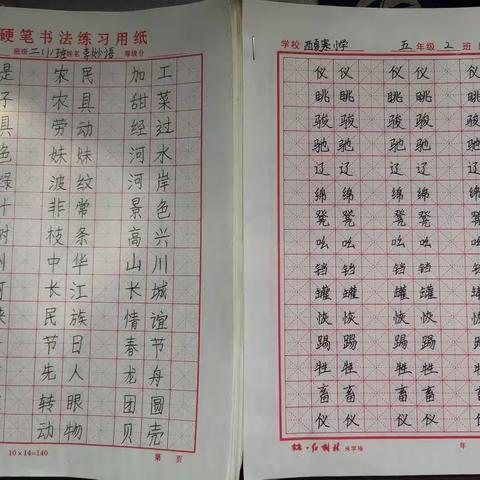 硬笔书法练习用纸
班级 二(1)班 姓名 李妙语 等级分
是 农民 加工
子 农具 甜菜
具 劳动 经过
色 妹妹 河水
绿 波纹 河岸
叶 非常 景色
树 枝条 高兴
中华 山川
长江 长城
民族 情谊
节日 春节
先人 龙舟
转眼 团圆
动物 贝壳
10×14=140 第 页
学校 小学 五年级 2 班
仪仪 仪仪
眺眺 眺眺
骏骏 骏骏
驰驰 驰驰
辽辽 辽辽
绵绵 绵绵
凳凳 凳凳
吆吆 吆吆
铛铛 铛铛
罐罐 罐罐
恢恢 恢恢
踢踢 踢踢
牲牲 牲牲
畜畜 畜畜
仪仪 仪仪
年